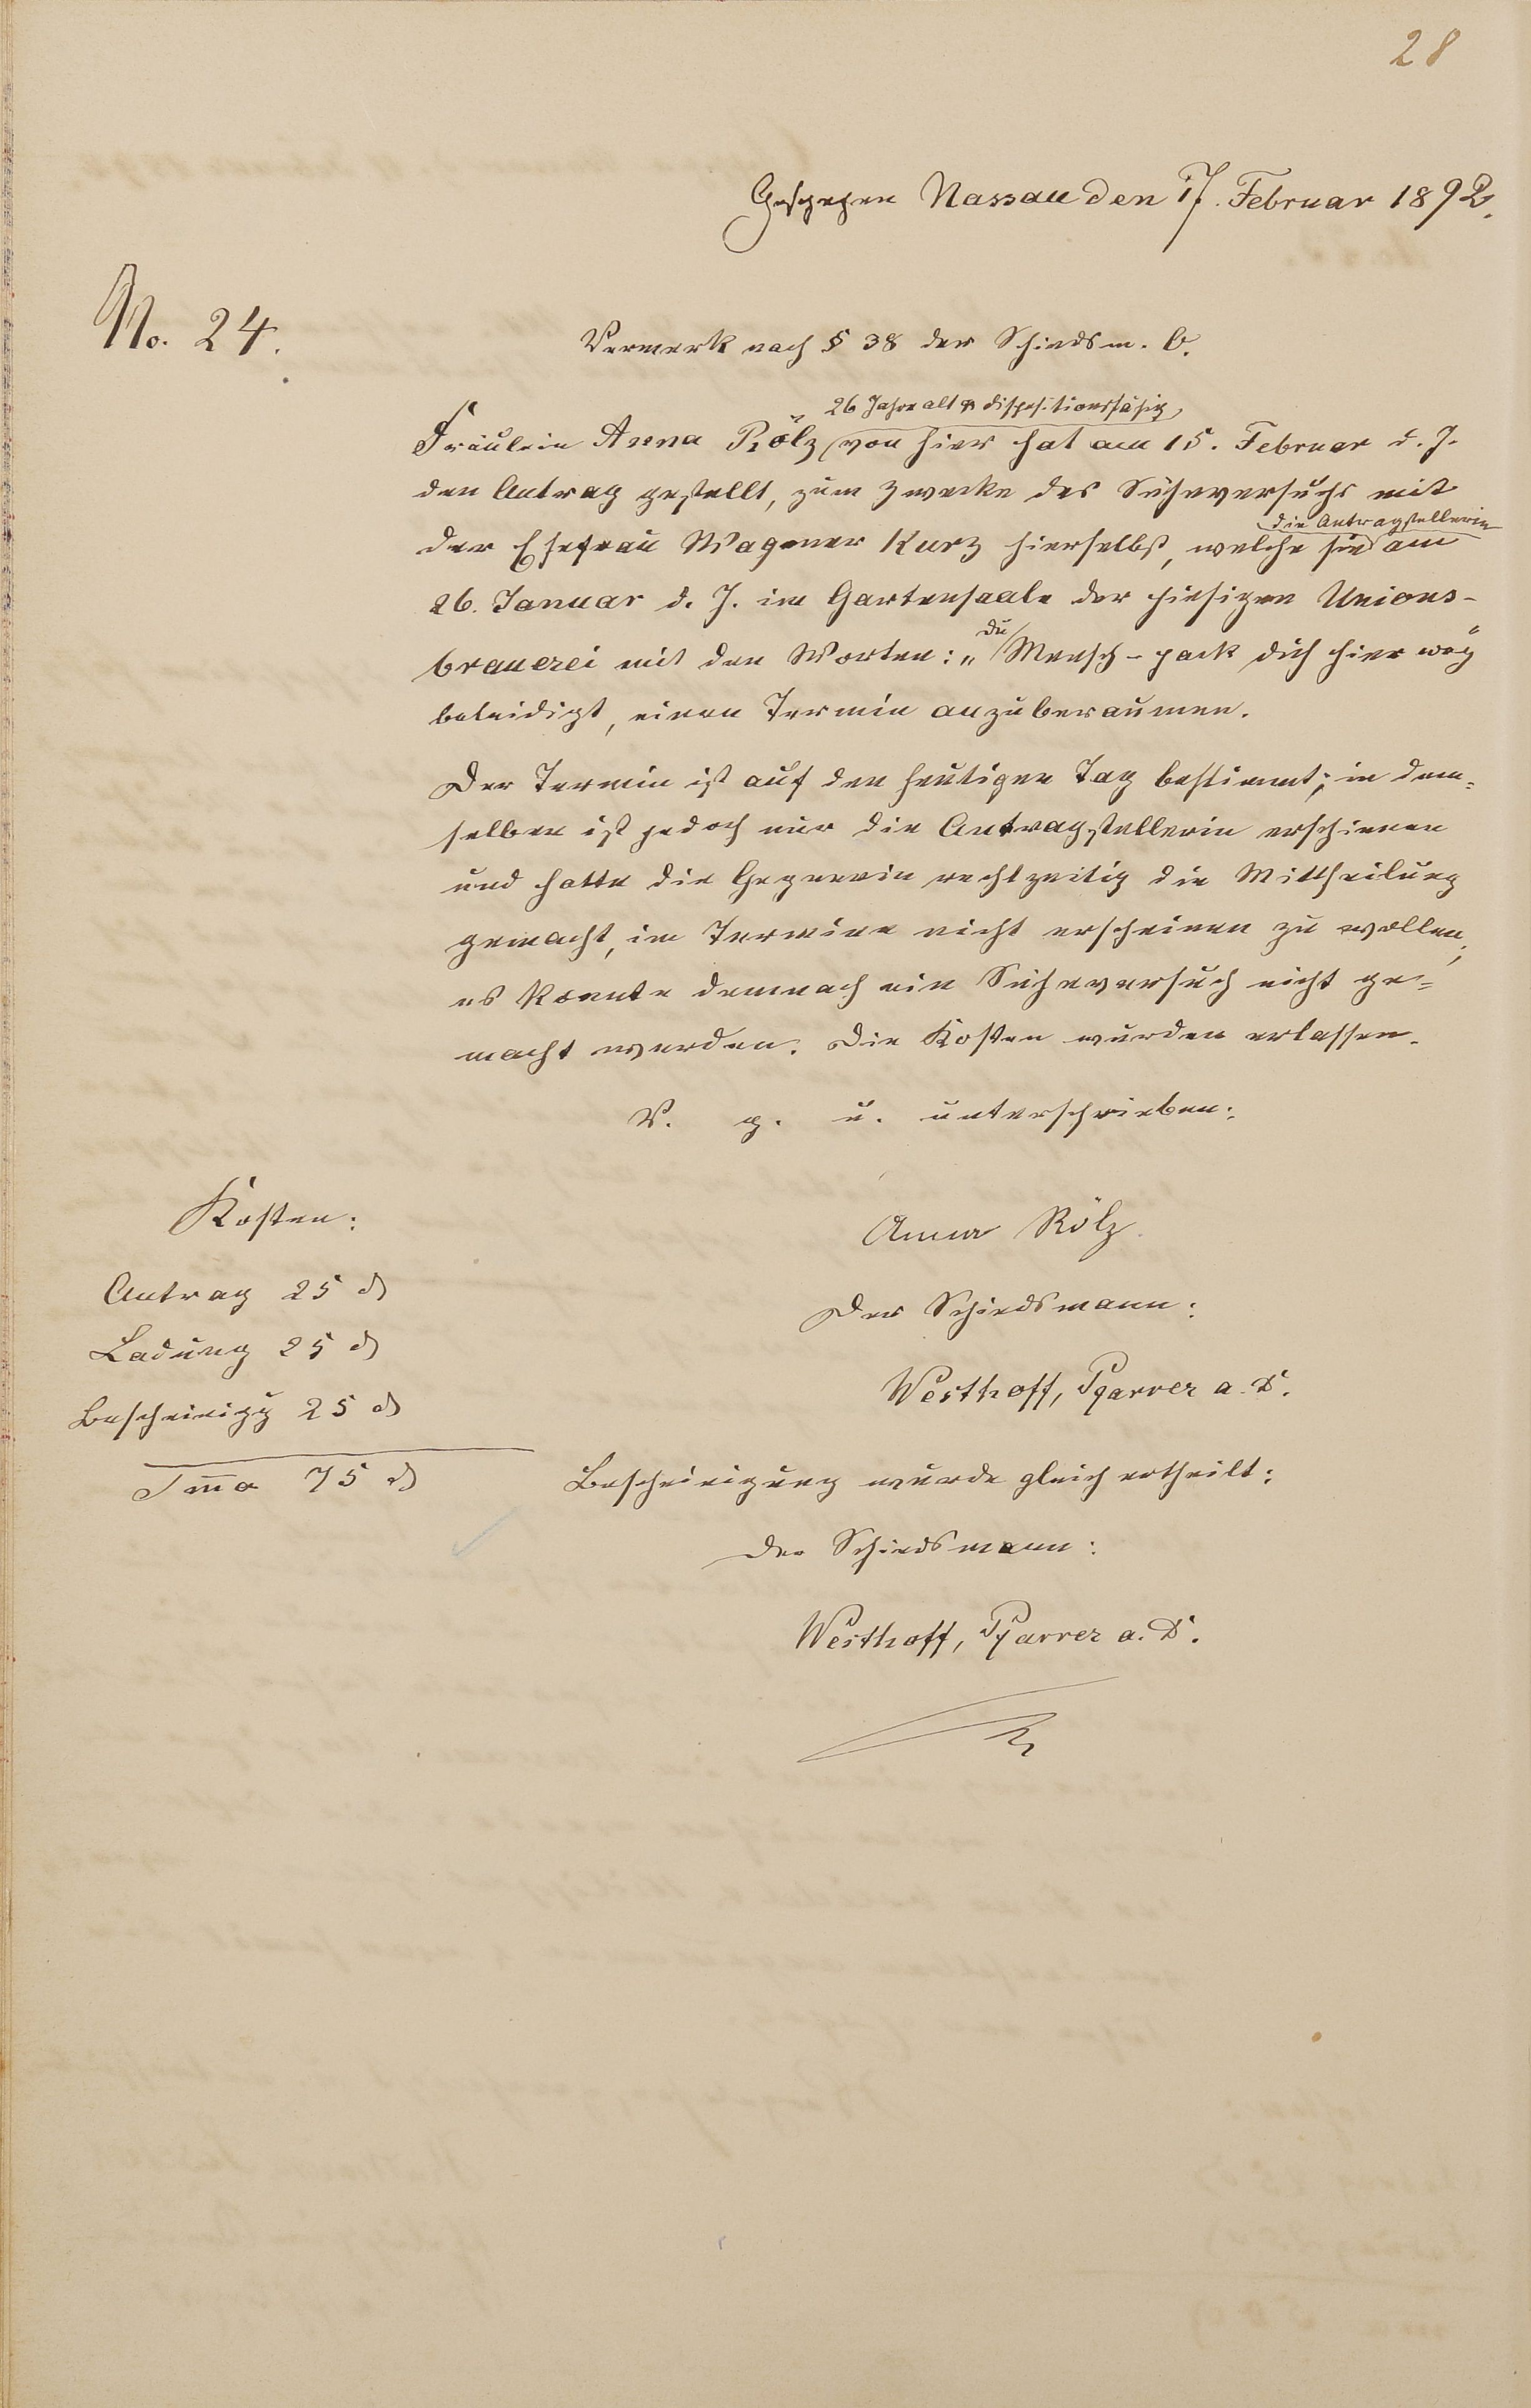 28
Geschehen Nassau den 17. Februar 1892.
No. 24.
Vermerk nach § 38 der Schiedsm. O.
26 Jahre alt & dispositionsfähig,
Fräulein Anna Rölz von hier hat am 15. Februar d. J.
den Antrag gestellt, zum Zwecke des Sühneversuchs mit
die Antragstellerin
der Ehefrau Wagner Kurz hierselbst, welche sie am
26. Januar d. J. im Gartensaale der hiesigen Unions-
du
brauerei mit den Worten: „Mensch - pack dich hier weg“
beleidigt, einen Termin anzuberaumen.
Der Termin ist auf den heutigen Tag bestimmt; in dem-
selben ist jedoch nur die Antragstellerin erschienen
und hatte die Gegnerin rechtzeitig die Mittheilung
gemacht, im Termine nicht erscheinen zu wollen;
es konnte demnach ein Sühneversuch nicht ge-
macht werden. Die Kosten wurden erlassen.
V. g. u. unterschrieben:
Kosten:
Antrag 25 ₰
Ladung 25 ₰
Bescheinigg 25 ₰
Sma 75 ₰
Anna Rölz.
Der Schiedsmann:
Westhoff, Pfarrer a. D.
Bescheinigung wurde gleich ertheilt:
Der Schiedsmann:
Westhoff, Pfarrer a. D.